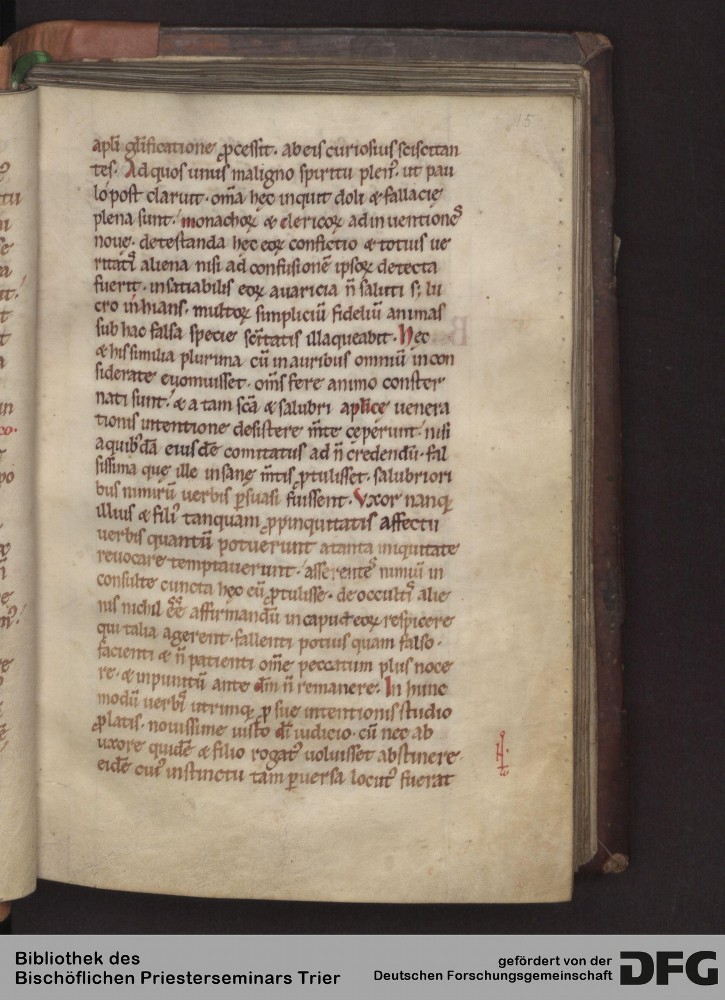 15
apłi glīficatione ꝓcessit. ab eis curiosius sciscitan
tes. Ad quos unus maligno spiritu plenꝰ. ut pau
lo post claruit. om̄a hęc inquit doli & fallacię
plena sunt. monachoꝝ & clericoꝝ ad inuentionēs
noue. detestanda hęc eoꝝ confictio & totius ue
ritatis aliena nisi ad confusionē ipsoꝝ detecta
fuerit. insatiabilis eoꝝ auaricia n̄ saluti s; lu
cro inhians. multoꝝ simpliciū fideliū animas
sub hac falsa specie sc̄itatis illaqueabit. Hęc
& his similia plurima cū in auribus omniū incon
siderate euomuisset. om̄s fere animo conster
nati sunt. & a tam sc̄a & salubri aplicę uenera
tionis intentione desistere m̄te ceperunt. nisi
a quibꝰdā eiusdē comitatus ad n̄ credendū. fal
sissima quę ille insanę m̄tis ꝓtulisset. salubriori
bus nimirū uerbis ꝑsuasi fuissent. Vxor nanq;
illius & filiꝰ tanquam ꝓpinquitatis affectu
uerbis quantū potuerunt a tanta iniquitate
reuocare temptauerunt. asserentes nimiū in
consulte cuncta hęc eū ꝓtulisse. de occultis alie
nis nichil ēē affirmandū in caput eoꝝ respicere
qui talia agerent. fallenti potius quam falso.
facienti & n̄ patienti om̄e peccatum plus noce
re. & inpunitū ante dm̄ n̄ remanere. In hunc
modū uerbis utrimq; ꝓ sue intentionis studio
ꝓlatis. nouissime iusto dī iudicio. cū nec ab
uxore quidē & filio rogatꝰ uoluisset abstinere.
eidē cuiꝰ instinctu tam ꝑuersa locutꝰ fuerat
Bibliothek des
Bischöflichen Priesterseminars Trier
gefördert von der
Deutschen Forschungsgemeinschaft
DFG